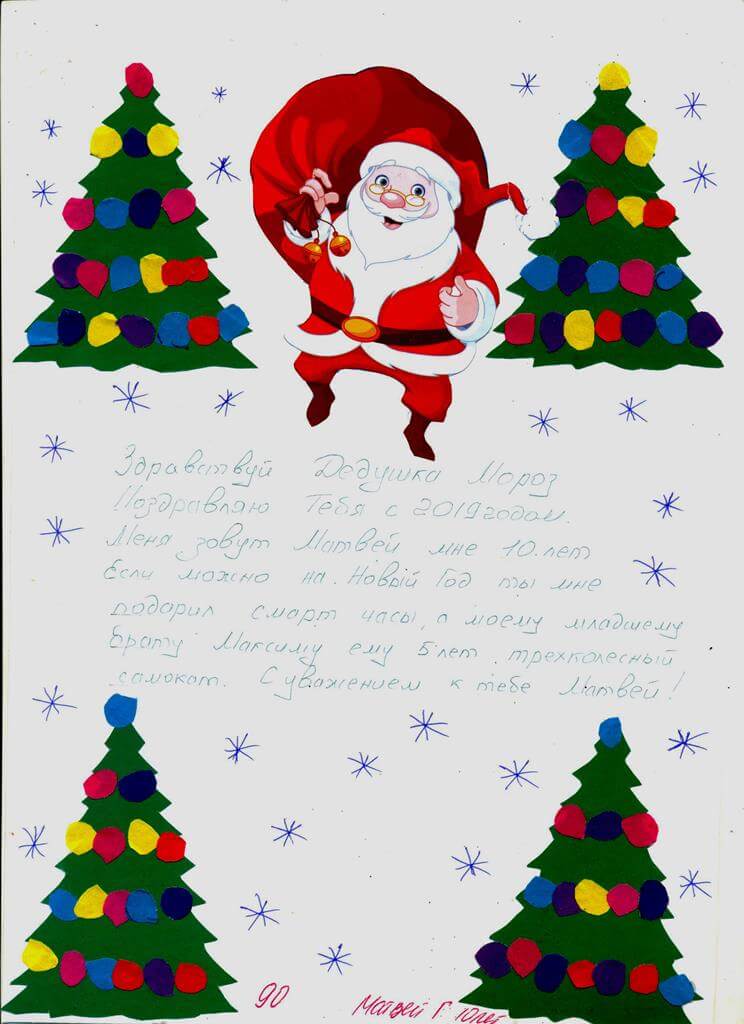 Здравствуй Дедушка Мороз
Поздравляю Тебя с 2019 годом.
Меня зовут Матвей мне 10.лет
Если можно на. Новый Год ты мне
подарил смарт часы, а моему младшему
брату Максиму ему 5 лет трехколесный
самокат. С уважением к тебе Матвей!
90
Матвей Г. 10лет